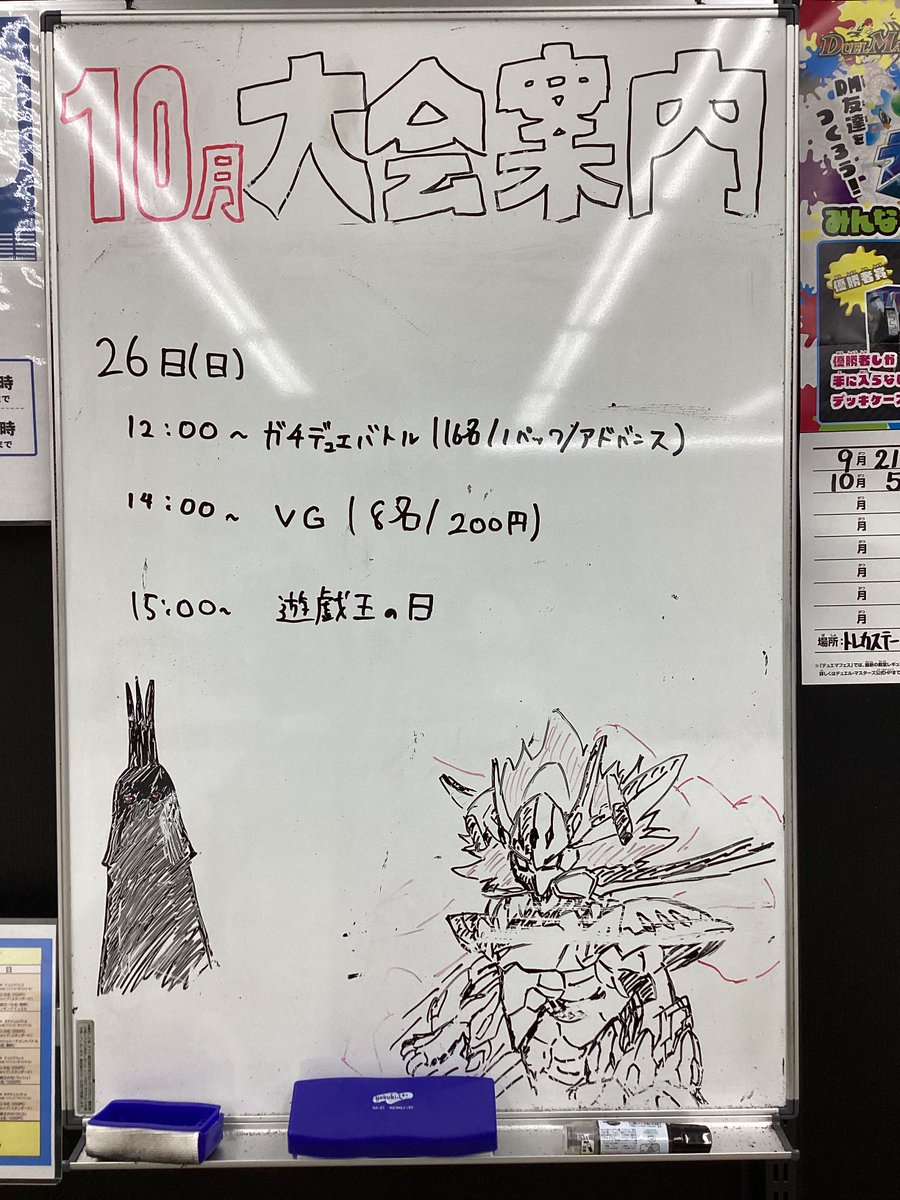 10月大会案内
26日(日)
12:00〜 ガチデュエバトル(16名/1パック/アドバンス)
14:00〜 VG(8名/200円)
15:00〜 遊戯王の日
DM友達を
つくろう!
みんな
優勝者賞
優勝者しか
手に入らな
デッキケース
9月21
10月 5
月
月
月
月
月
月
場所:トレカステー
時
まで
時
まで
KOKUYO